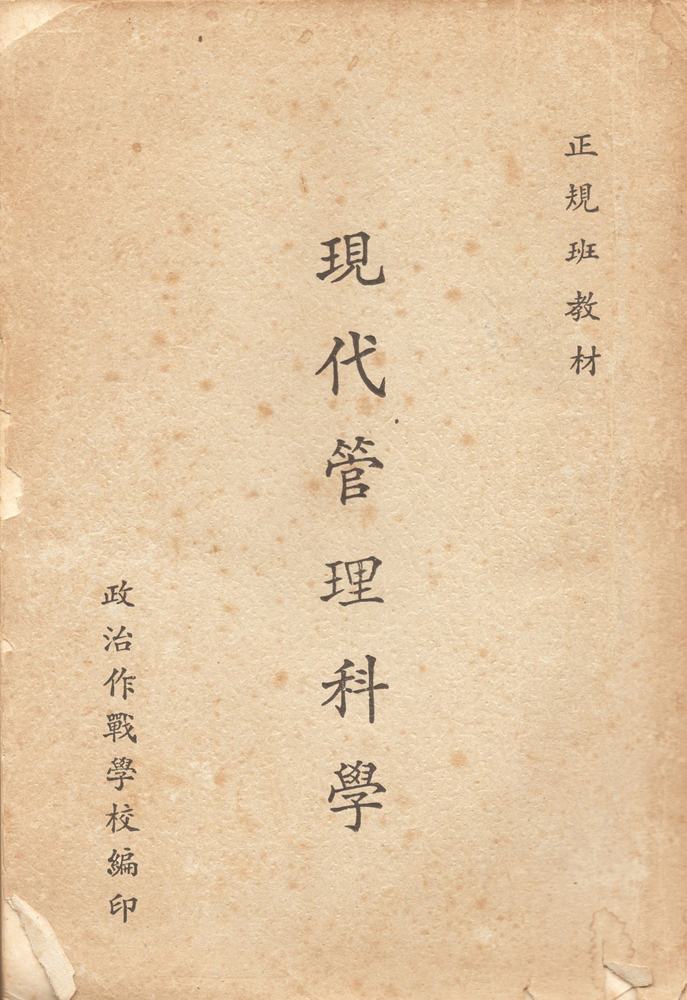 正規班教材
現代管理科學
政治作戰學校編印